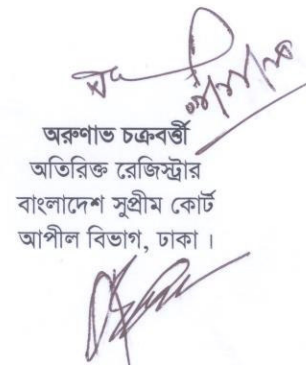 অরুণাভ চক্রবর্ত্তী
অতিরিক্ত রেজিস্ট্রার
বাংলাদেশ সুপ্রীম কোর্ট
আপীল বিভাগ, ঢাকা ।